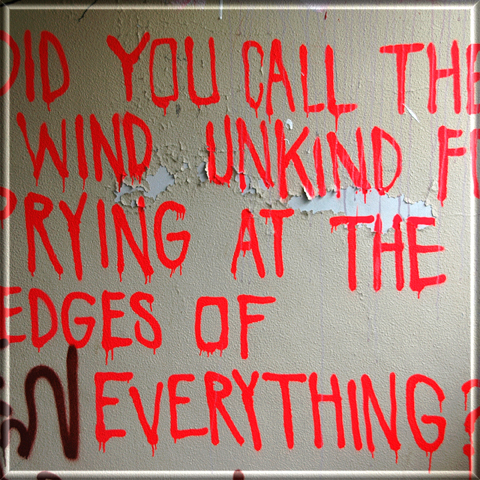 DID YOU CALL THE
WIND UNKIND FO
PRYING AT THE
EDGES OF
EVERYTHING?